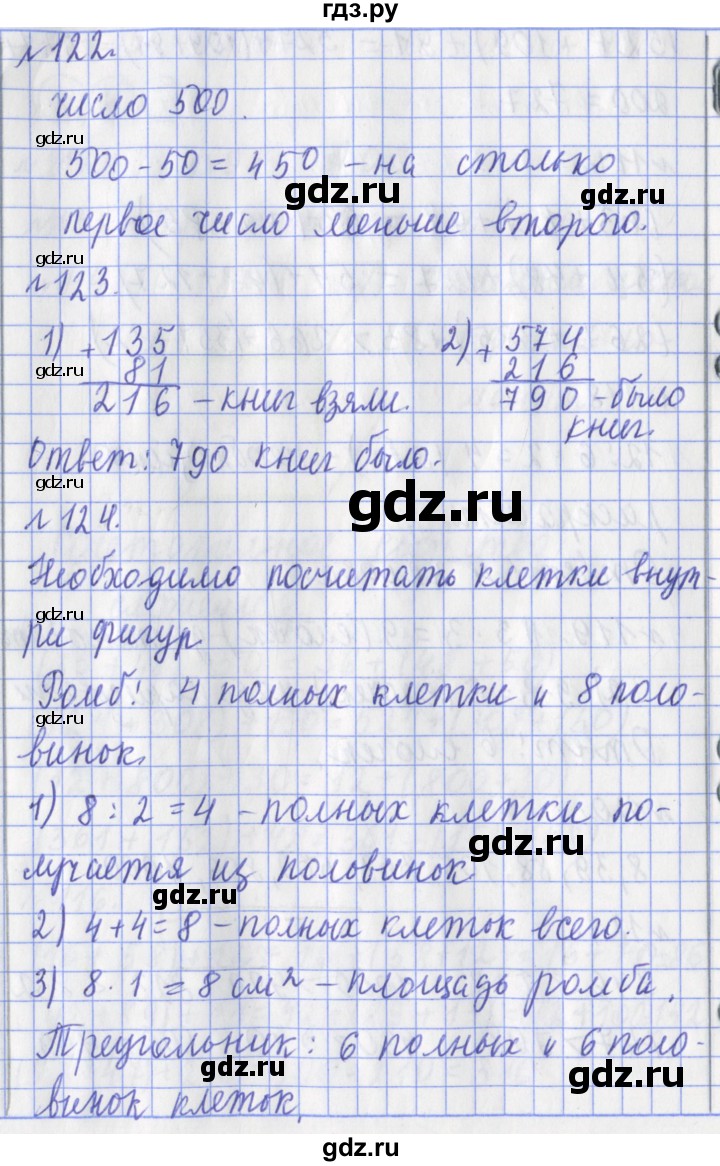 гдз.ру
№122.
число 500.
gdz.ru
500-50=450 -на столько
gdz.ru
gdz.ru
первое число меньше второго.
gdz.ru
№123.
1) +135
81
216 -книг взяли.
2) +574
216
790 -было
книг.
gdz.ru
Ответ: 790 книг было.
gdz.ru
gdz.ru
№124.
Необходимо посчитать клетки внут-
gdz.ru
ри фигур
Ромб: 4 полных клетки и 8 поло-
gdz.ru
винок.
1) 8:2=4 -полных клетки по-
gdz.ru
лучается из половинок.
gdz.ru
2) 4+4=8 -полных клеток всего.
3) 8·1=8см² -площадь ромба.
gdz.ru
Треугольник: 6 полных и 6 поло-
gdz.ru
gdz.ru
винок клеток,
gdz.ru